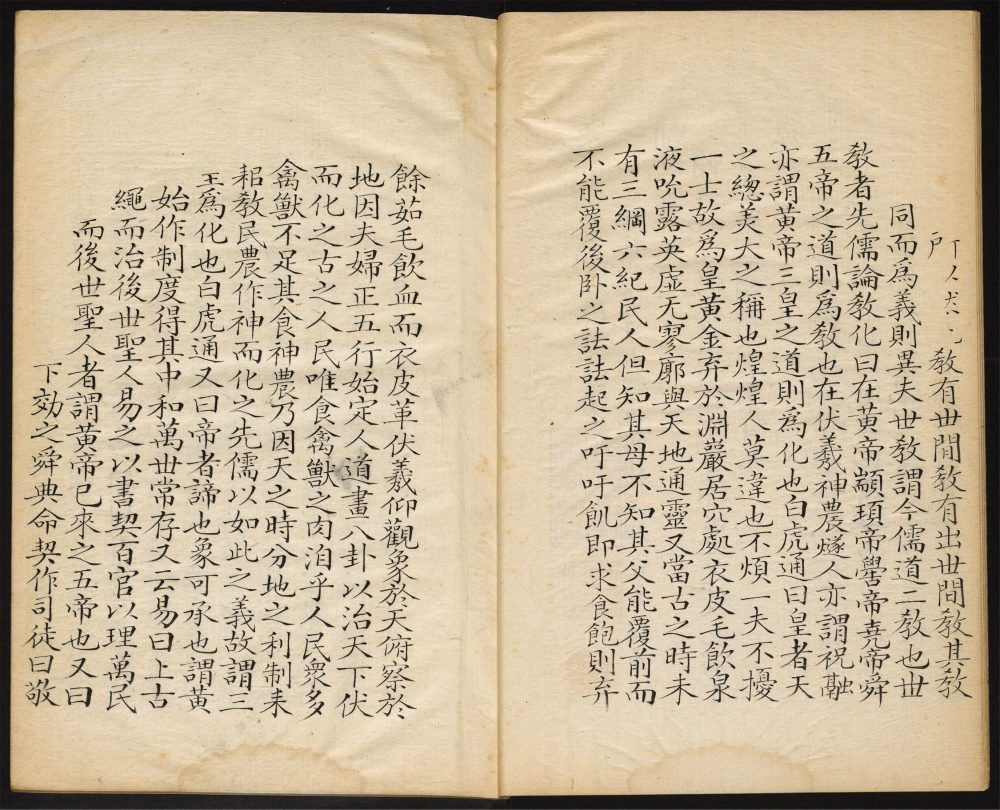 教有世間教有出世間教其教
同而爲義則異夫世教謂今儒道二教也世
教者先儒論教化曰在黃帝顓頊帝嚳帝堯帝舜
五帝之道則爲教也在伏羲神農燧人亦謂祝融
亦謂黃帝三皇之道則爲化也白虎通曰皇者天
之總美大之稱也煌煌人莫違也不煩一夫不擾
一士故爲皇黃金弃於淵巖居穴處衣皮毛飲泉
液吮露英虛无寥廓與天地通靈又當古之時未
有三綱六紀民人但知其母不知其父能覆前而
不能覆後卧之詓詓起之吁吁飢即求食飽則弃
餘茹毛飲血而衣皮革伏羲仰觀象於天俯察於
地因夫婦正五行始定人道畫八卦以治天下伏
而化之古之人民唯食禽獸之肉洎乎人民衆多
禽獸不足其食神農乃因天之時分地之利制耒
耜教民農作神而化之先儒以如此之義故謂三
王爲化也白虎通又曰帝者諦也象可承也謂黃
始作制度得其中和萬世常存又云易曰上古
繩而治後世聖人易之以書契百官以理萬民
而後世聖人者謂黃帝已來之五帝也又曰
下効之舜典命契作司徒曰敬